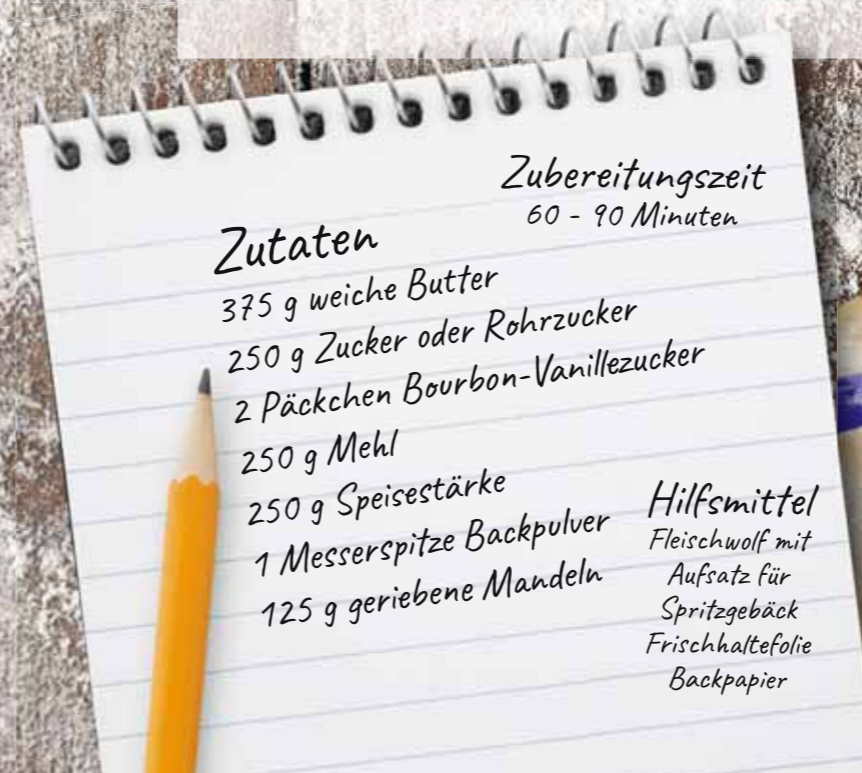 Zubereitungszeit
60 - 90 Minuten
Zutaten
375 g weiche Butter
250 g Zucker oder Rohrzucker
2 Päckchen Bourbon-Vanillezucker
250 g Mehl
250 g Speisestärke
1 Messerspitze Backpulver
125 g geriebene Mandeln
Hilfsmittel
Fleischwolf mit
Aufsatz für
Spritzgebäck
Frischhaltefolie
Backpapier